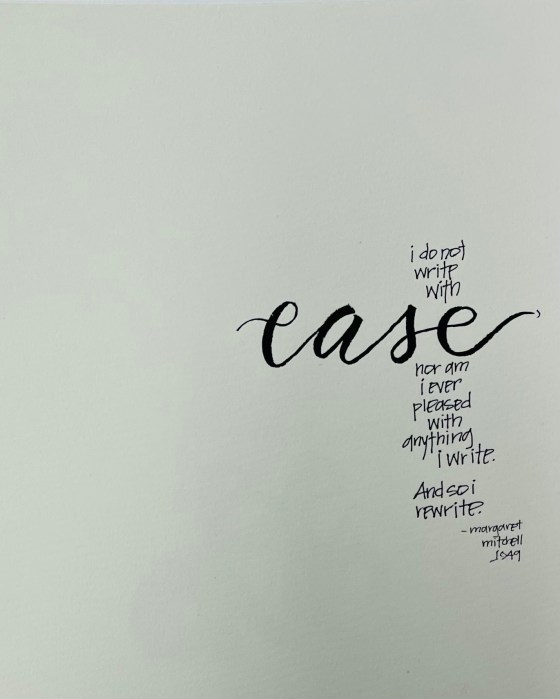 i do not
write
with
ease,
nor am
i ever
pleased
with
anything
i write.
And so i
rewrite.
- margaret
mitchell
1949